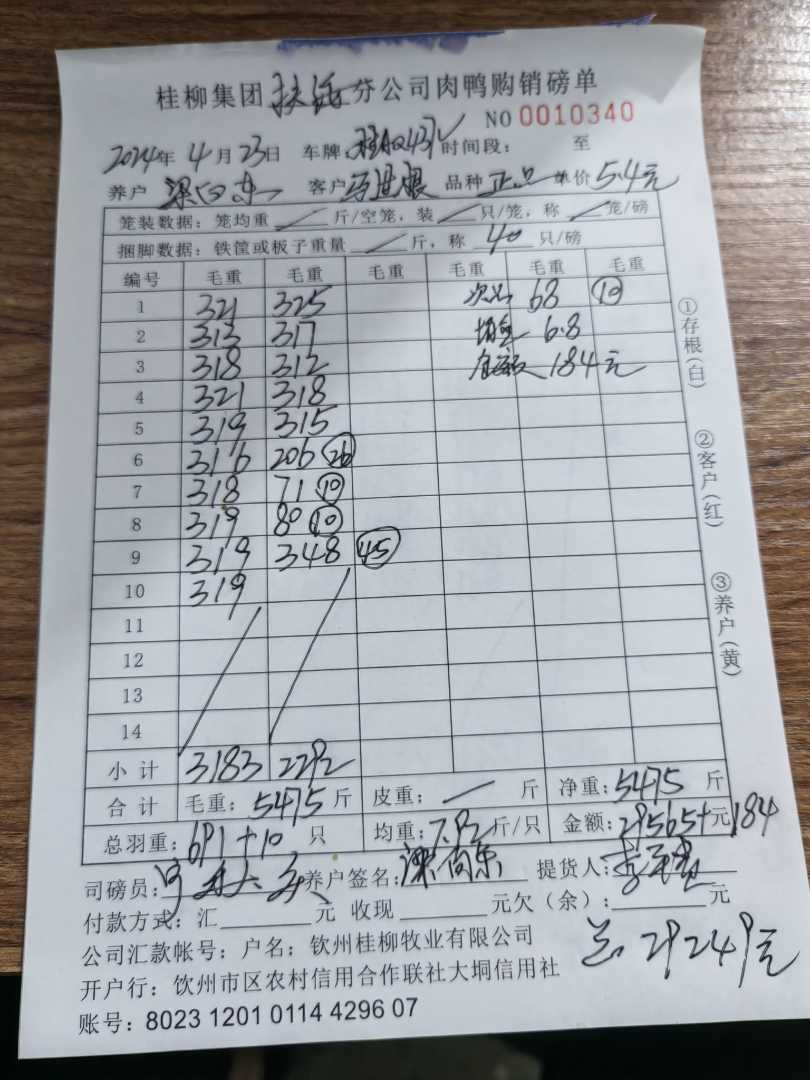 桂柳集团扶绥分公司肉鸭购销磅单
NO 0010340
2024年 4月23日 车牌: 时间段: 至
养户 客户 品种 正品 单价5.4元
笼装数据: 笼均重 / 斤/空笼, 装 / 只/笼, 称 / 笼/磅
捆脚数据: 铁筐或板子重量 / 斤, 称 40 只/磅
编号 毛重 毛重 毛重 毛重 毛重 毛重
1 321 325 次品 68 10
2 313 317 销重 6.8
3 318 312 金额 184元
4 321 318
5 319 315
6 316 206 26
7 318 71 10
8 319 80 10
9 319 348 45
10 319
11
12
13
14
小计 3183 2292
合计 毛重: 5475 斤 皮重: / 斤 净重: 5475 斤
总羽重: 691+10 只 均重: 7.92斤/只 金额: 29565+元184
司磅员: 养户签名: 梁尚东 提货人:
付款方式: 汇 元 收现 元欠(余): 元
公司汇款帐号: 户名: 钦州桂柳牧业有限公司
总29749元
开户行: 钦州市区农村信用合作联社大垌信用社
账号: 8023 1201 0114 4296 07
①存根(白)
②客户(红)
③养户(黄)